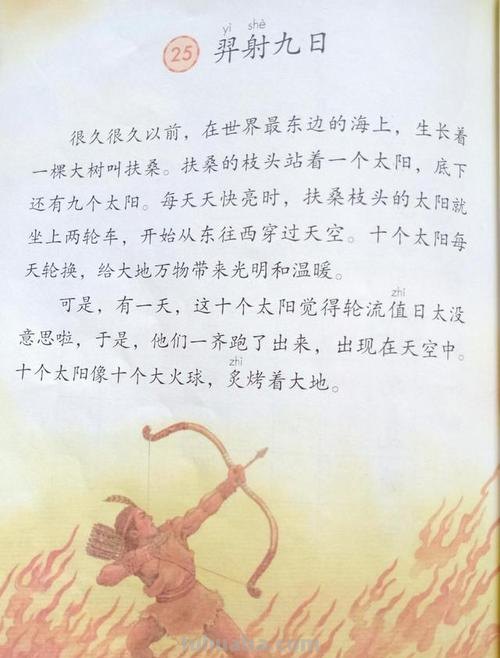 yì shè
25 羿射九日
很久很久以前，在世界最东边的海上，生长着
一棵大树叫扶桑。扶桑的枝头站着一个太阳，底下
还有九个太阳。每天天快亮时，扶桑枝头的太阳就
坐上两轮车，开始从东往西穿过天空。十个太阳每
天轮换，给大地万物带来光明和温暖。
zhí
可是，有一天，这十个太阳觉得轮流值日太没
意思啦，于是，他们一齐跑了出来，出现在天空中。
zhì
十个太阳像十个大火球，炙烤着大地。